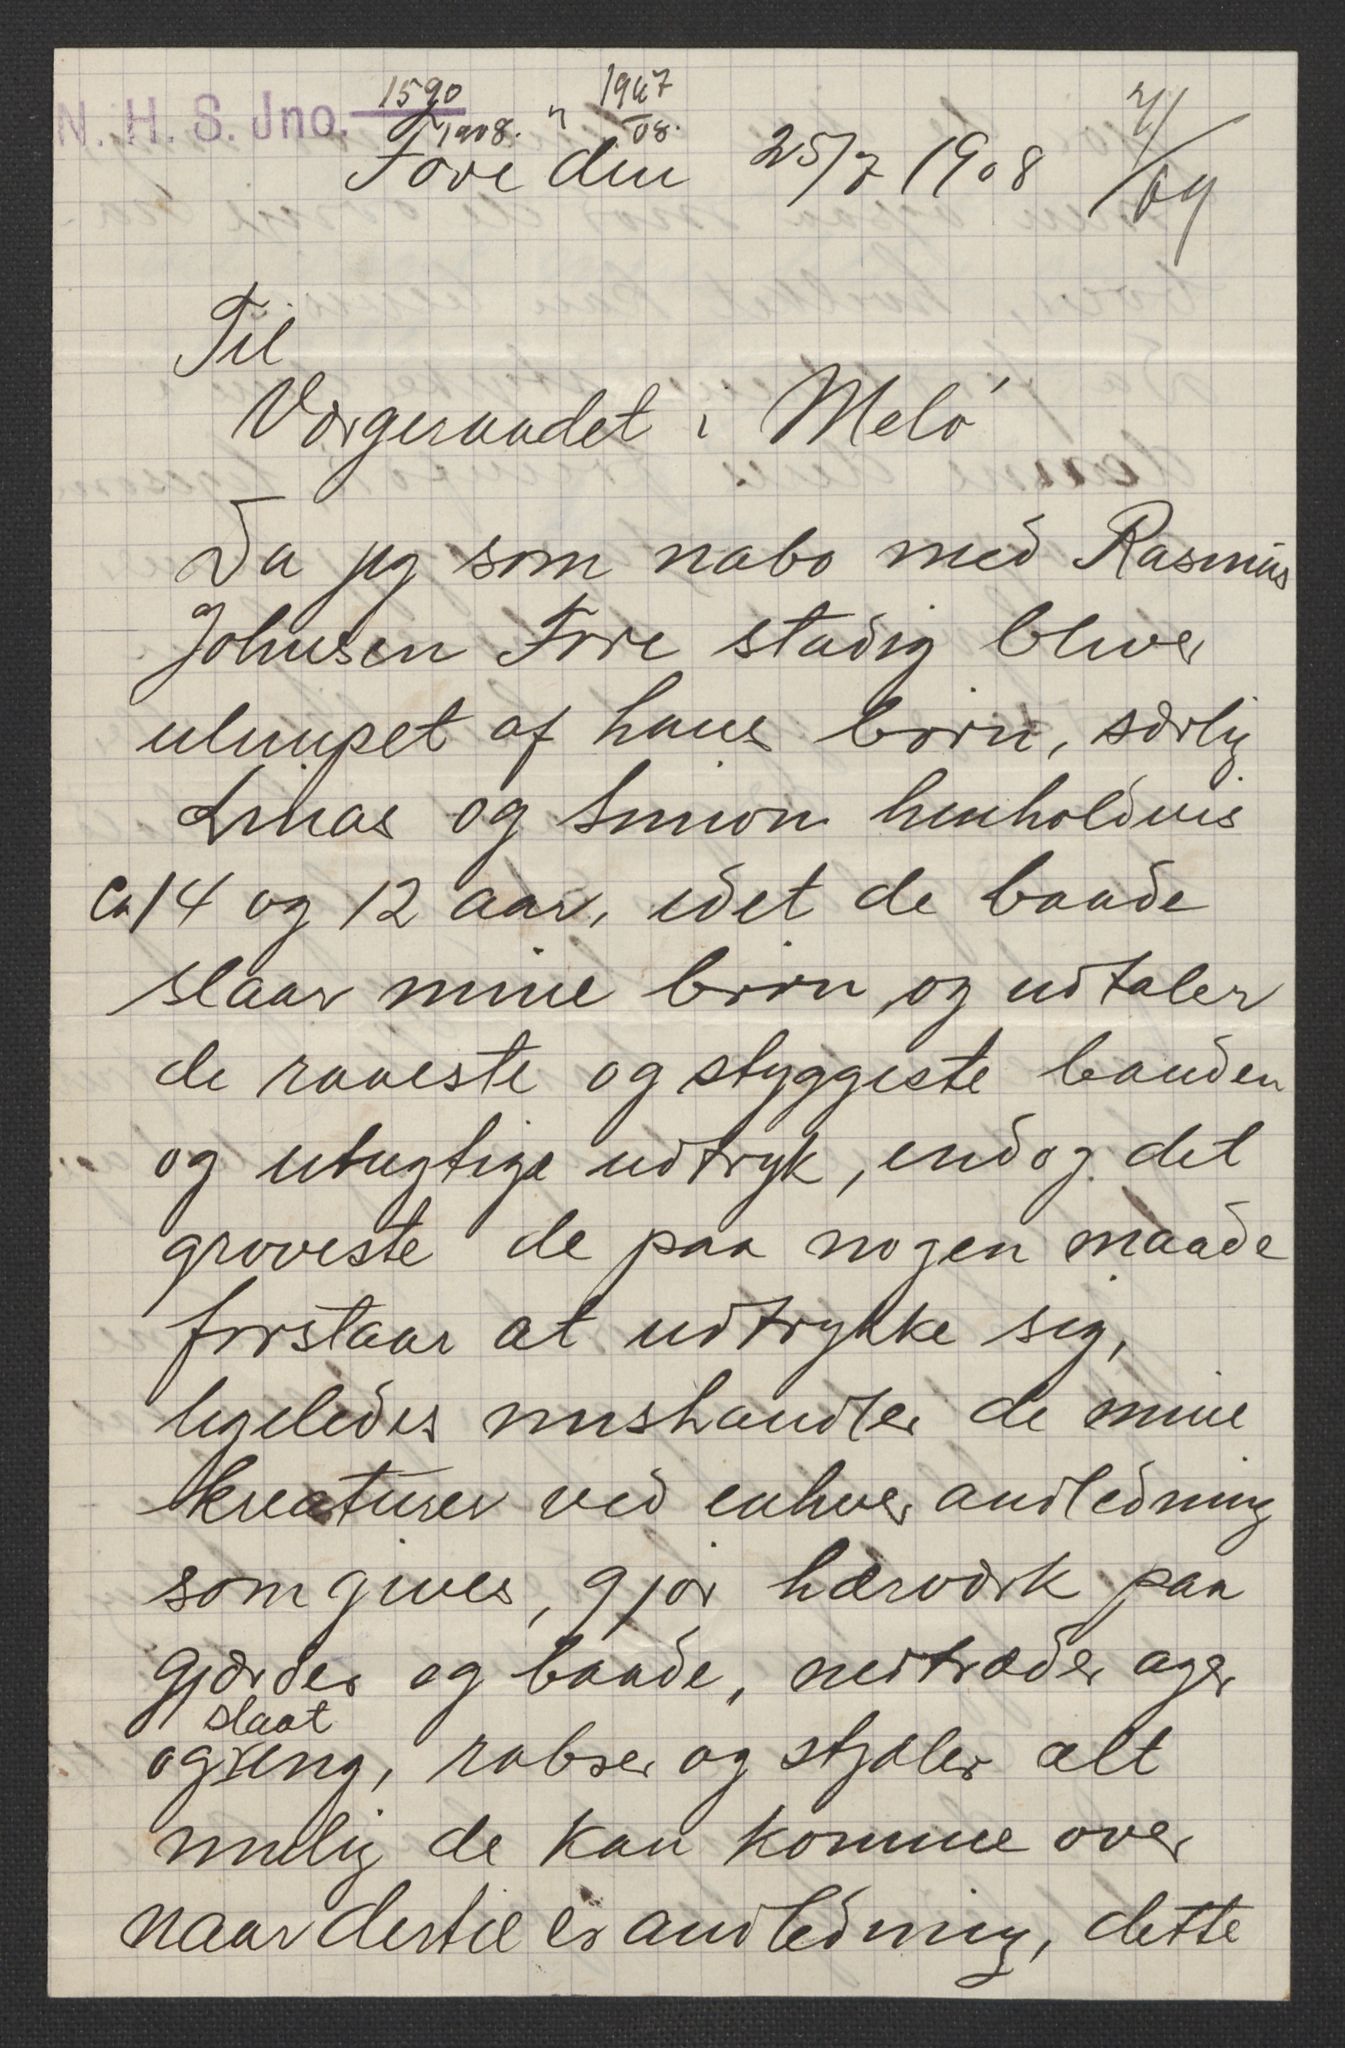 N. H. S. Jno. 1590/1908. " 1947/08.
Fore den 25/7 1908
Til
Værgeraadet i Melø
Da jeg som nabo med Rasmus
Johnsen Fore stadig bliver
ulimpet af hans børn, særlig
Linas og Simon henholdsvis
ca 14 og 12 aar, idet de baade
slaar mine børn og udtaler
de raaeste og styggeste banden
og utugtige udtryk, endog det
groveste de paa nogen maade
forstaar at udtrykke sig,
ligeledes mishandler de mine
kreaturer ved enhver andledning
som gives, gjør hærværk paa
gjærder og baade, nedtræder ager
slaat
og eng, rabser og stjæler alt
mulig de kan komme over
naar dertil er andledning, dette